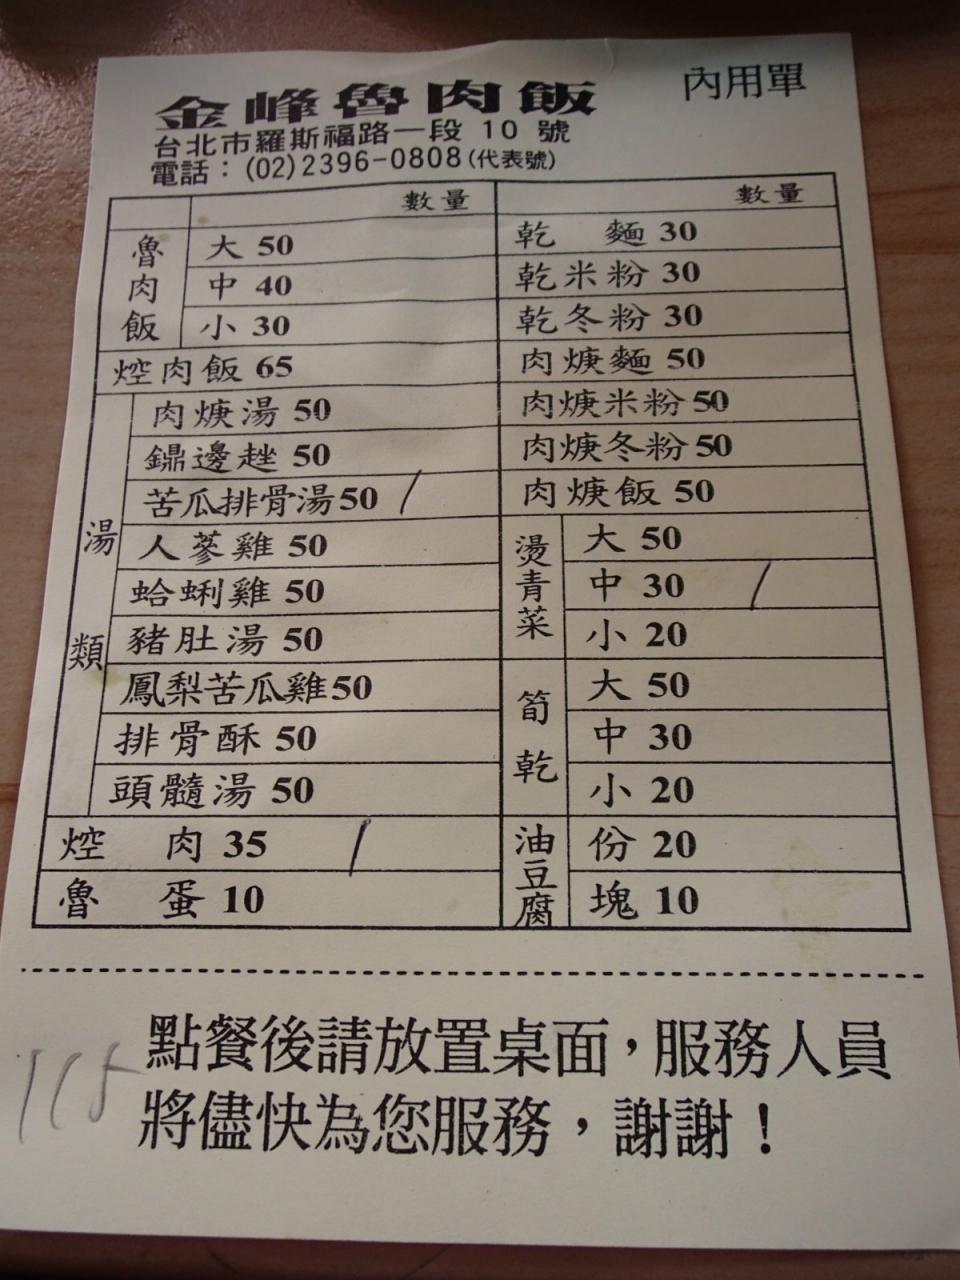 金峰魯肉飯
內用單
台北市羅斯福路一段 10 號
電話：(02)2396-0808(代表號)
數量
魯肉飯
大 50
中 40
小 30
焢肉飯 65
湯類
肉焿湯 50
鼎邊趖 50
苦瓜排骨湯50 /
人蔘雞 50
蛤蜊雞 50
豬肚湯 50
鳳梨苦瓜雞50
排骨酥 50
頭髓湯 50
焢肉 35 /
魯蛋 10
數量
乾麵 30
乾米粉 30
乾冬粉 30
肉焿麵 50
肉焿米粉50
肉焿冬粉50
肉焿飯 50
燙青菜
大 50
中 30 /
小 20
筍乾
大 50
中 30
小 20
油豆腐
份 20
塊 10
點餐後請放置桌面，服務人員
將儘快為您服務，謝謝！
115